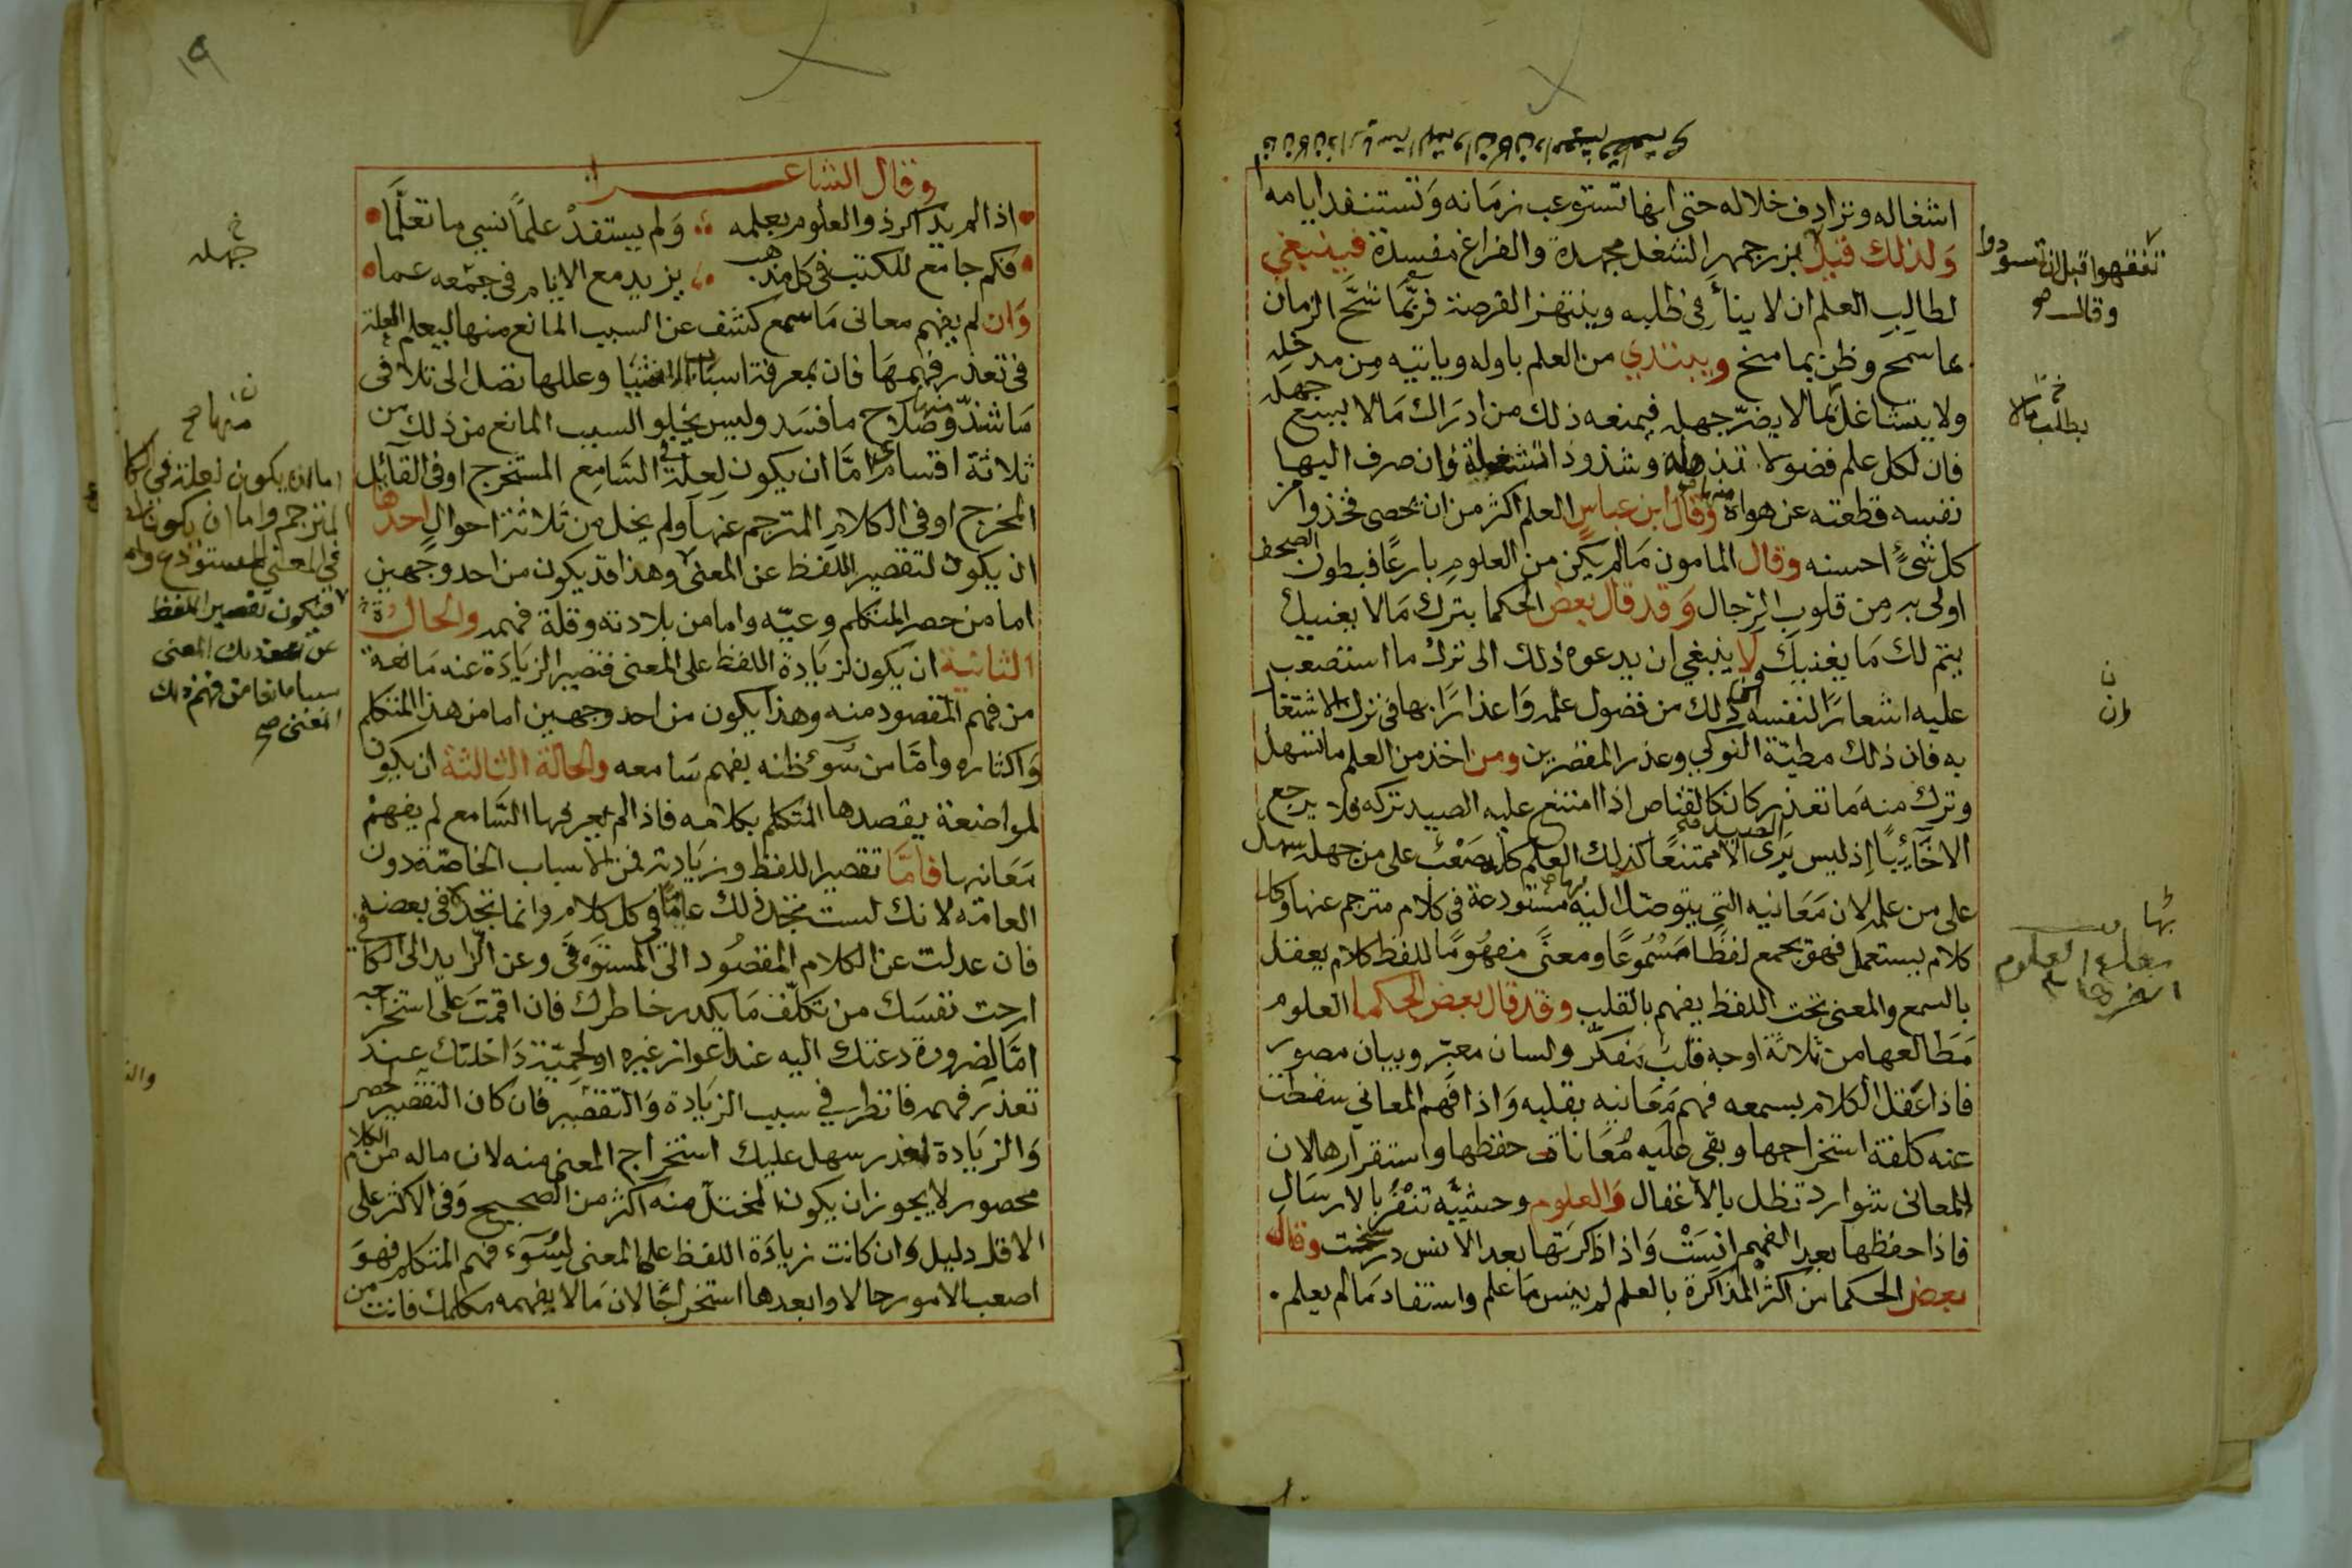 اشغاله وتزادف خلاله حتى انها تستوعب زمانه وتستنفد ايامه
ولذلك قيل بزرجمهر الشغل مجهدة والفراغ مفسدة فينبغي
لطالب العلم ان لا ينأ في طلبه وينتهز الفرصة فربما شح الزمان
بما سمح وظن بما منح ويبتدي من العلم باوله وياتيه من مدخله
ولا يتشاغل بما لا يضر جهله فيمنعه ذلك من ادراك ما لا يسع جهله
فان لكل علم فضولا تذهله وشذوذا تشغله وان صرف اليها
نفسه قطعته عن هواه وقال ابن عباس العلم اكثر من ان يحصى فخذوا من
كل شيء احسنه وقال المامون ما لم يكن من العلوم بارعا فبطون الصحف
اولى به من قلوب الرجال وقد قال بعض الحكما بترك ما لا يعنيك
يتم لك ما يغنيك ولا ينبغي ان يدعوه ذلك الى ترك ما استصعب
عليه اشعارا لنفسه ان ذلك من فضول علمه واعذارا بها في ترك الاشتغا
به فان ذلك مطية النوكى وعذر المقصرين ومن اخذ من العلم ما تسهل
وترك منه ما تعذر كان كالقناص اذا امتنع عليه الصيد تركه فلا يرجع
الا خائبا إذ ليس يرى الصيد الا ممتنعا كذلك العلم كله صعب على من جهله سهل
على من علمه لان معانيه التي يتوصل اليها مستودعة في كلام مترجم عنها وكل
كلام يستعمل فهو يجمع لفظا مسموعا ومعنى مفهوما للفظ كلام يعقل
بالسمع والمعنى تحت اللفظ يفهم بالقلب وقد قال بعض الحكما العلوم
مطالعها من ثلاثة اوجه قلب مفكر ولسان معبر وبيان مصور
فاذا عقل الكلام بسمعه فهم معانيه بقلبه واذا فهم المعاني سقطت
عنه كلفة استخراجها وبقى عليه معاناة حفظها واستقرارها لان
المعانى شوارد تظل بالاغفال والعلوم وحشية تنفر بالارسال
فاذا حفظها بعد الفهم انست واذا ذكرتها بعد الانس رسخت وقال
بعض الحكما من اكثر المذاكرة بالعلم لم ينس ما علم واستفاد ما لم يعلم
تفقهوا قبل ان تسودوا
وقال صح
خ
يطلب مالا
ن
وان
بها
العلوم
١٩
وقال الشاعر
اذا لم يذاكر ذو العلوم بعلمه ولم يستفد علما نسي ما تعلما
فكم جامع للكتب في كل مذهب يزيد مع الايام في جمعه عما
وان لم يفهم معانى ما سمع كشف عن السبب المانع منها ليعلم العلة
في تعذر فهمها فان بمعرفة اسباب الاشيا وعللها تصل الى تلافى
ما شذ وصلاح ما فسد وليس يخلو السبب المانع من ذلك من
ثلاثة اقسام اما ان يكون لعلة في السامع المستخرج او في القائل
المخرج او في الكلام المترجم عنها ولم يخل من ثلاثة احوال احدها
ان يكون لتقصير اللفظ عن المعنى وهذا قد يكون من احد وجهين
اما من حصر المتكلم وعيه واما من بلادته وقلة فهمه والحالة
الثانية ان يكون لزيادة اللفظ على المعنى فتصير الزيادة عنه مانعة
من فهم المقصود منه وهذا يكون من احد وجهين اما من هذر المتكلم
واكثاره واما من سوء ظنه بفهم سامعه والحالة الثالثة ان يكون
لمواضعة يقصدها المتكلم بكلامه فاذا لم يعرفها السامع لم يفهم
معانيها فاما تقصير اللفظ وزيادته فمن الاسباب الخاصة دون
العامة لانك لست تجد ذلك عاما في كل كلام وانما تجده في بعضه
فان عدلت عن الكلام المقصود الى المستوفى وعن الزايد الى الكافى
ارحت نفسك من تكلف ما يكدر خاطرك فان اقمت على استخراجه
اما لضرورة دعتك اليه عند اعواز غيره او لحمية داخلتك عند
تعذر فهمه فانظر في سبب الزيادة والتقصير فان كان التقصير لحصر
والزيادة لهذر سهل عليك استخراج المعنى منه لان ما له من الكلام
محصور لا يجوز ان يكون المختل منه اكثر من الصحيح وفي الاكثر على
الاقل دليل وان كانت زيادة اللفظ على المعنى لسوء فهم المتكلم فهو
اصعب الامور حالا وابعدها استخراجا لان ما لا يفهمه مكلمك فانت من
خ
جهله
ن
منها صح
اما ان يكون لعلة في الكلا
المترجم واما ان يكون لعلة
في المعنى المستودع واما
فيكون تقصير اللفظ
عن ذلك المعنى
سببا مانعا من فهم ذلك
المعنى صح